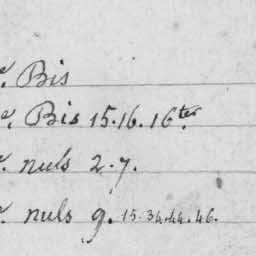 e. Bis
e. Bis 15.16.16ter.
e. nuls 2.7.
e. nuls 9. 15.34.44.46.